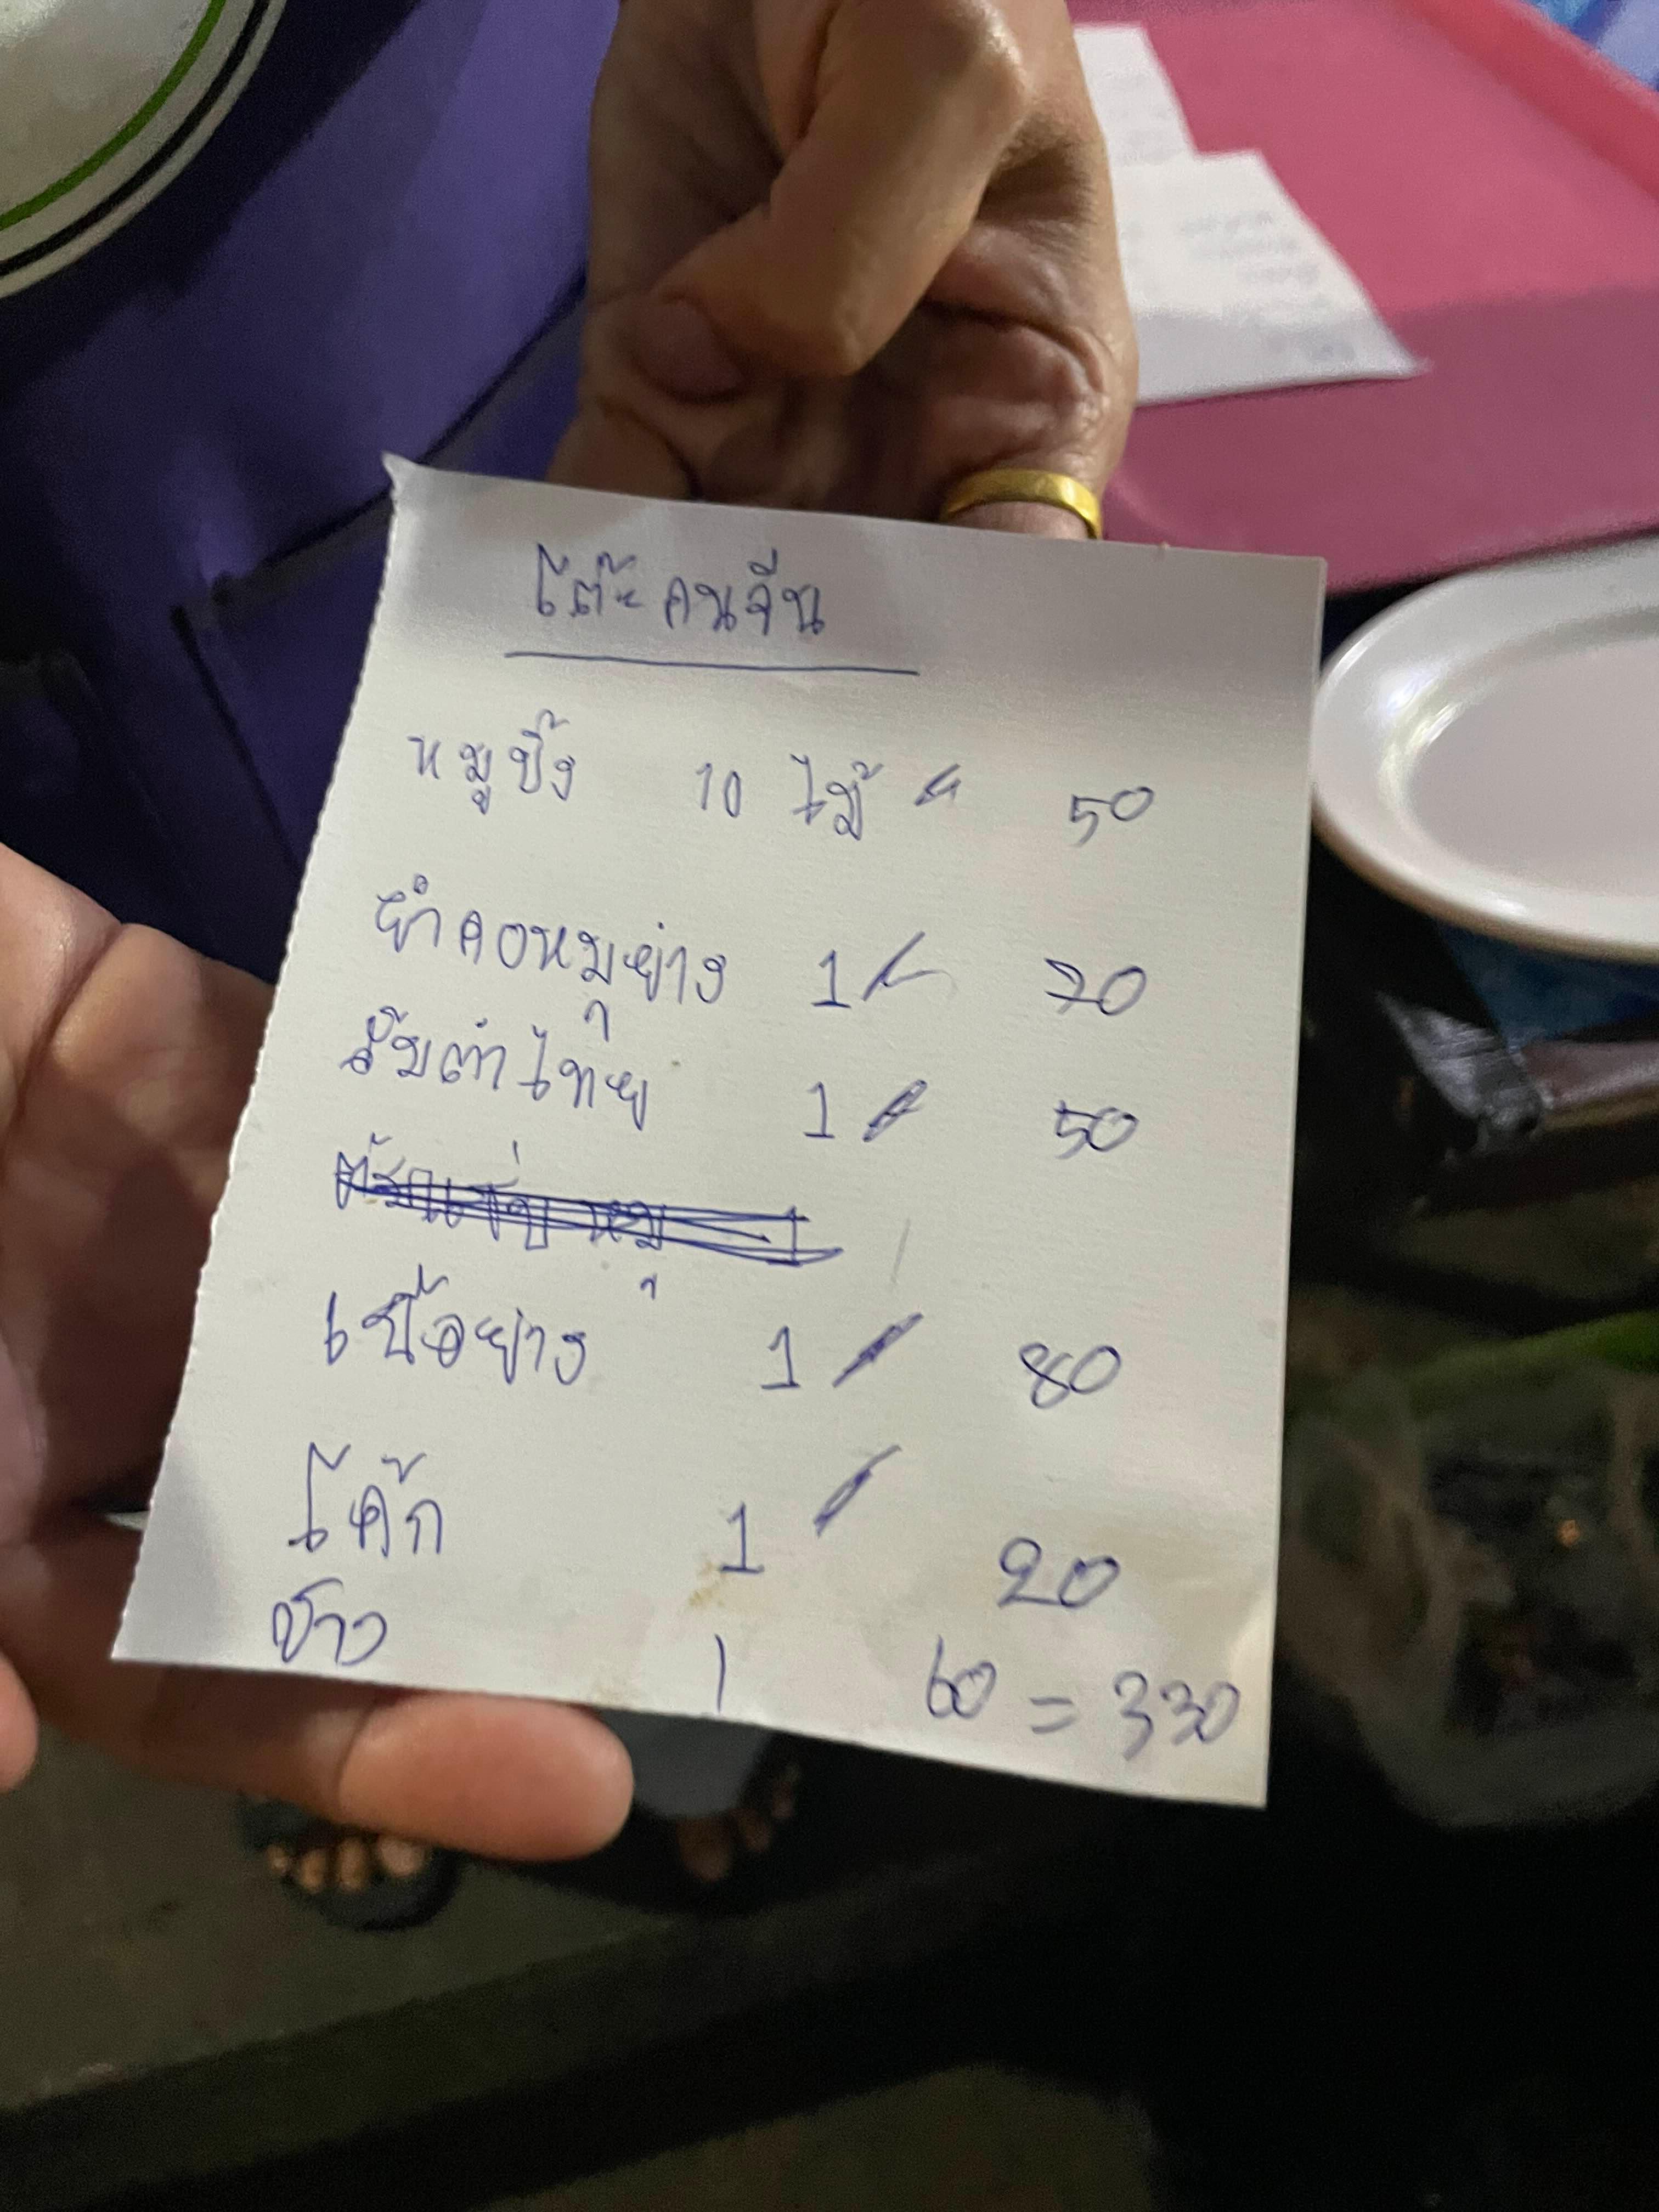 โต๊ะคนจีน
หมูปิ้ง 10 ไม้ 50
ยำคอหมูย่าง 1 70
ส้มตำไทย 1 50
เนื้อย่าง 1 80
โค้ก 1 20
ข้าว 1 60 = 330